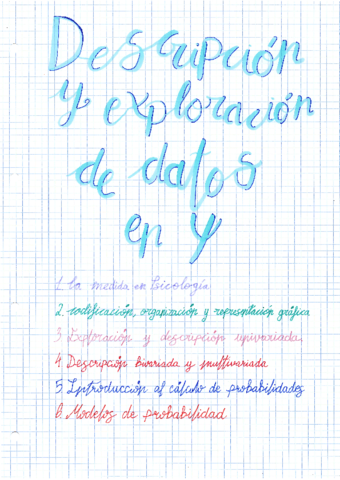 Descripción
y exploración
de datos
en Ψ
1. La medida en Psicología
2. codificación, organización y representación gráfica
3. Exploración y descripción univariada.
4. Descripción bivariada y multivariada
5. Introducción al cálculo de probabilidades
6. Modelos de probabilidad